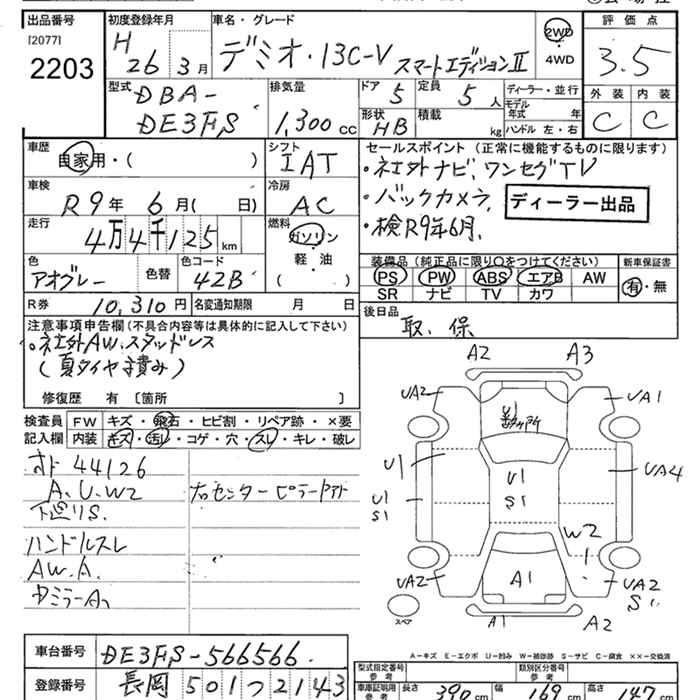 出品番号 初度登録年月 車名・グレード 評価点
[2077] H 26年 3月 デミオ・13C-V スマートエディションII 2WD 3.5
2203 4WD
型式 排気量 ドア 5 定員 5人 ディーラー・並行 外装 内装
DBA- モデル年式 年
DE3FS 1,300cc 形状 HB 積載 kg ハンドル 左・右 C C
車歴 シフト セールスポイント (正常に機能するものに限ります)
自家用・( ) IAT ・社外ナビ、ワンセグTV
車検 冷房 ・バックカメラ、 ディーラー出品
R9年 6月( 日) AC ・検R9年6月、
走行 燃料
4万4千125km ガソリン 装備品 (純正品に限り○をつけてください) 新車保証書
軽・油 PS PW ABS エアB AW 有・無
色 色替 色コード ( ) SR ナビ TV カワ
アオグレー 42B
R券 10,310円 名変通知期限 月 日 後日品
取、保
注意事項申告欄 (不具合内容等は具体的に記入して下さい)
。社外AW、スタッドレス
(夏タイヤ積み)
修復歴 有 〔箇所 〕
検査員 FW キズ・飛石・ヒビ割・リペア跡・×要
記入欄 内装 キズ・汚レ・コゲ・穴・スレ・キレ・破レ
44126
A.U.W2 右センターピラー
下廻りS.
ハンドルスレ
AW.A.
A2 A3
UA2 UA1
U1 U1 UA4
U1 S1 S1
W2
UA2 A1 UA2
S1
スペア A1 A2
A-キズ E-エクボ U-凹み W-補修跡 S-サビ C-腐食 XX-交換済
車台番号 DE3FS-566566
登録番号 長岡 501つ2143
型式指定番号 参考 類別区分番号 参考
車庫証明用 参考 長さ 390cm 幅 169cm 高さ 147cm